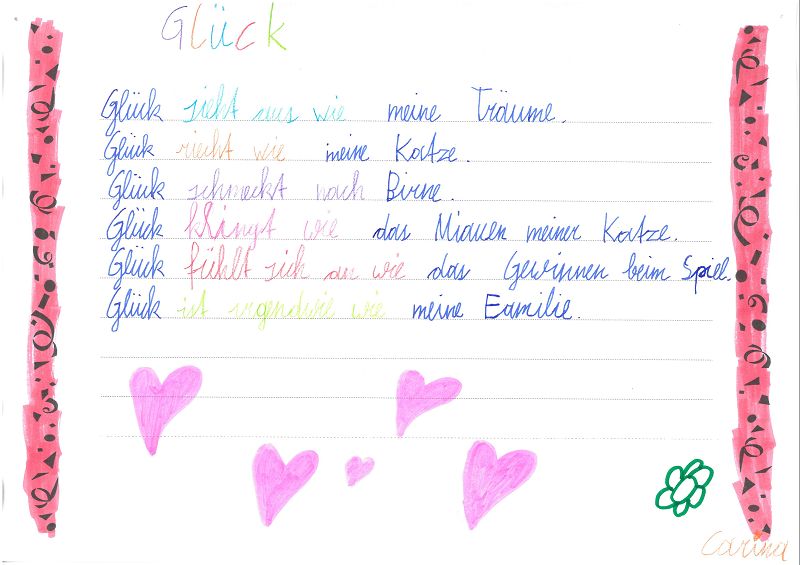 Glück
Glück sieht aus wie meine Träume.
Glück riecht wie meine Katze.
Glück schmeckt nach Birne.
Glück klingt wie das Miauen meiner Katze.
Glück fühlt sich an wie das Gewinnen beim Spiel.
Glück ist irgendwie wie meine Familie.
Carina